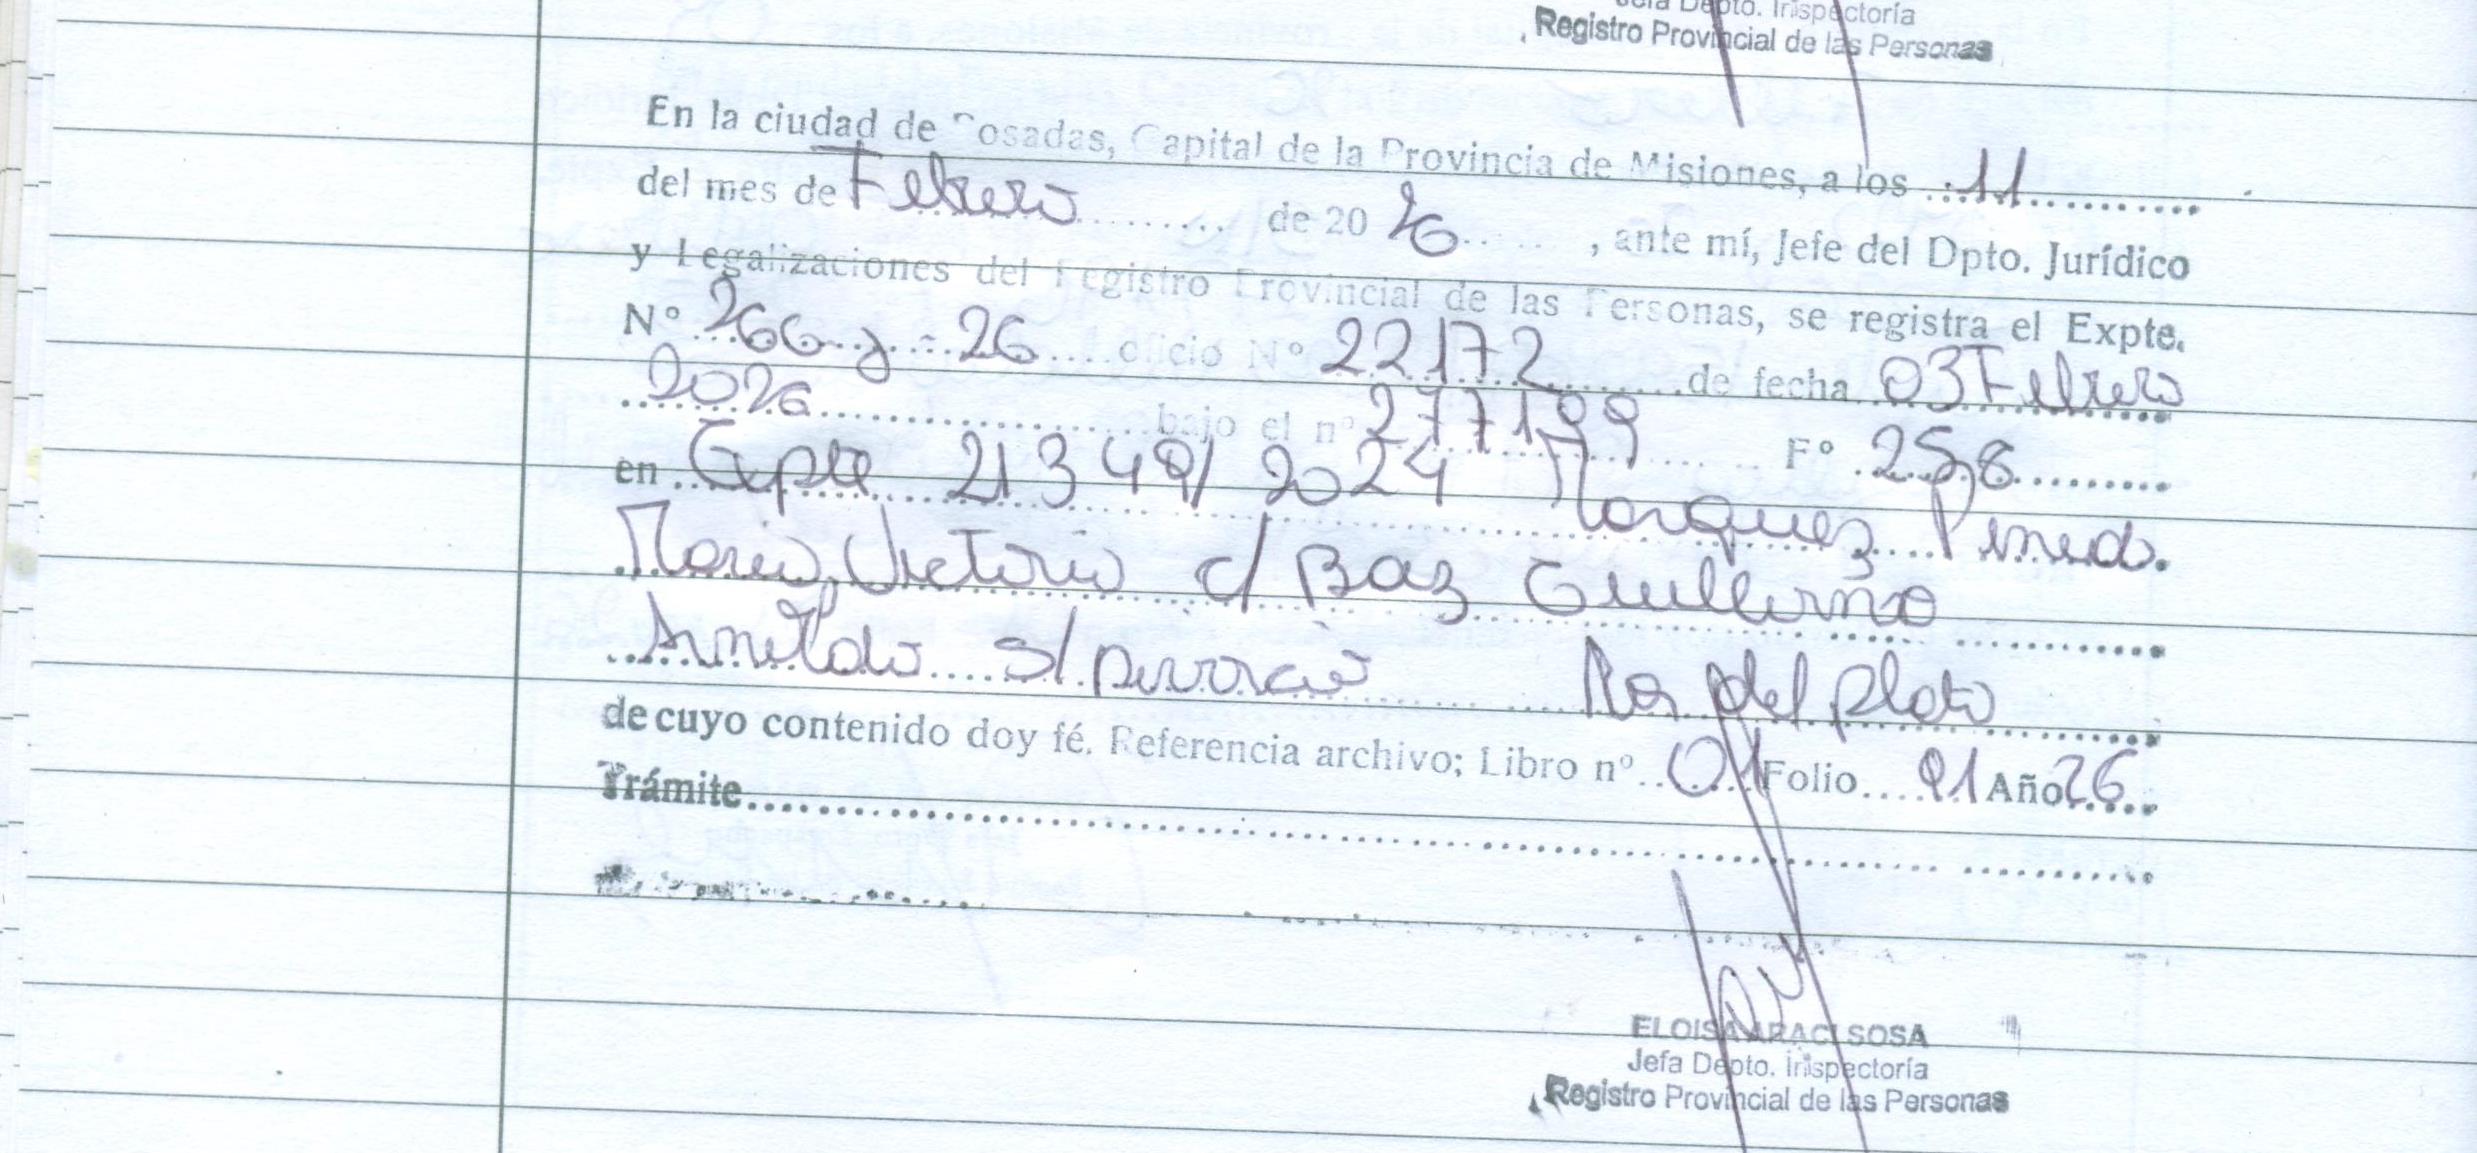 Jefa Depto. Inspectoría
Registro Provincial de las Personas
En la ciudad de Posadas, Capital de la Provincia de Misiones, a los 11
del mes de Febrero de 20 26, ante mí, Jefe del Dpto. Jurídico
y Legalizaciones del Registro Provincial de las Personas, se registra el Expte.
Nº 266 - 26 oficio Nº 22172 de fecha 03 Febrero
2026 bajo el nº 277199 Fº 258
en Expte 21349/2024 Marquez Pineda
Maria Victoria c/ Baez Guillermo
Arnaldo s/ Divorcio Mar del Plata
de cuyo contenido doy fé. Referencia archivo; Libro nº 01 Folio 91 Año 26
Trámite
ELOISA ARACI SOSA
Jefa Depto. Inspectoría
Registro Provincial de las Personas